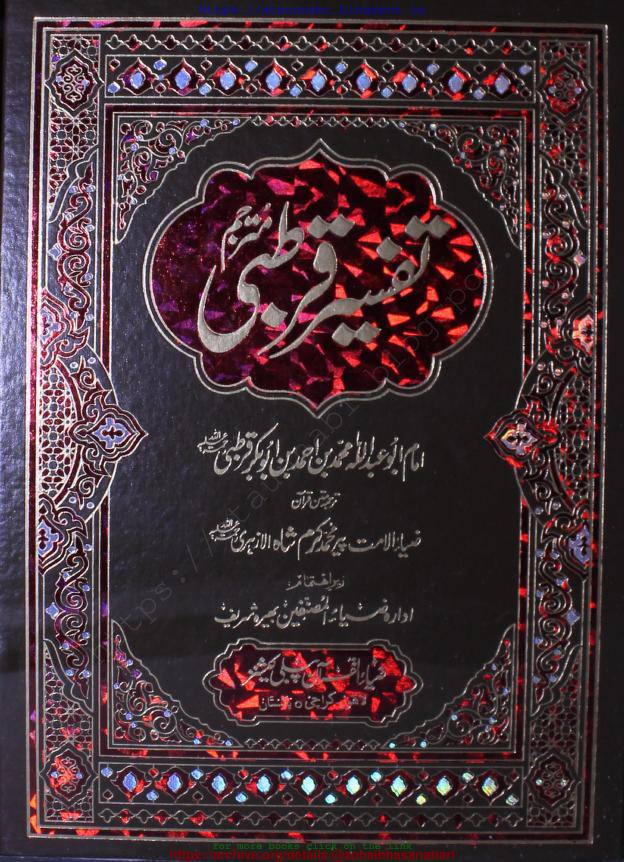 https://ataunnabi.blogspot.com
تفسیر قرطبی مترجم
امام ابو عبداللہ محمد بن احمد بن ابوبکر قرطبی رحمۃ اللہ علیہ
ترجمہ متن قرآن
ضیاء الامت پیر محمد کرم شاہ الازہری رحمۃ اللہ علیہ
زیر اہتمام:
ادارہ ضیاء المصنفین بھیرہ شریف
ضیاء القرآن پبلی کیشنز
لاہور۔ کراچی ○ پاکستان
For more books click on the link
https://archive.org/details/@zohaibhasanattari